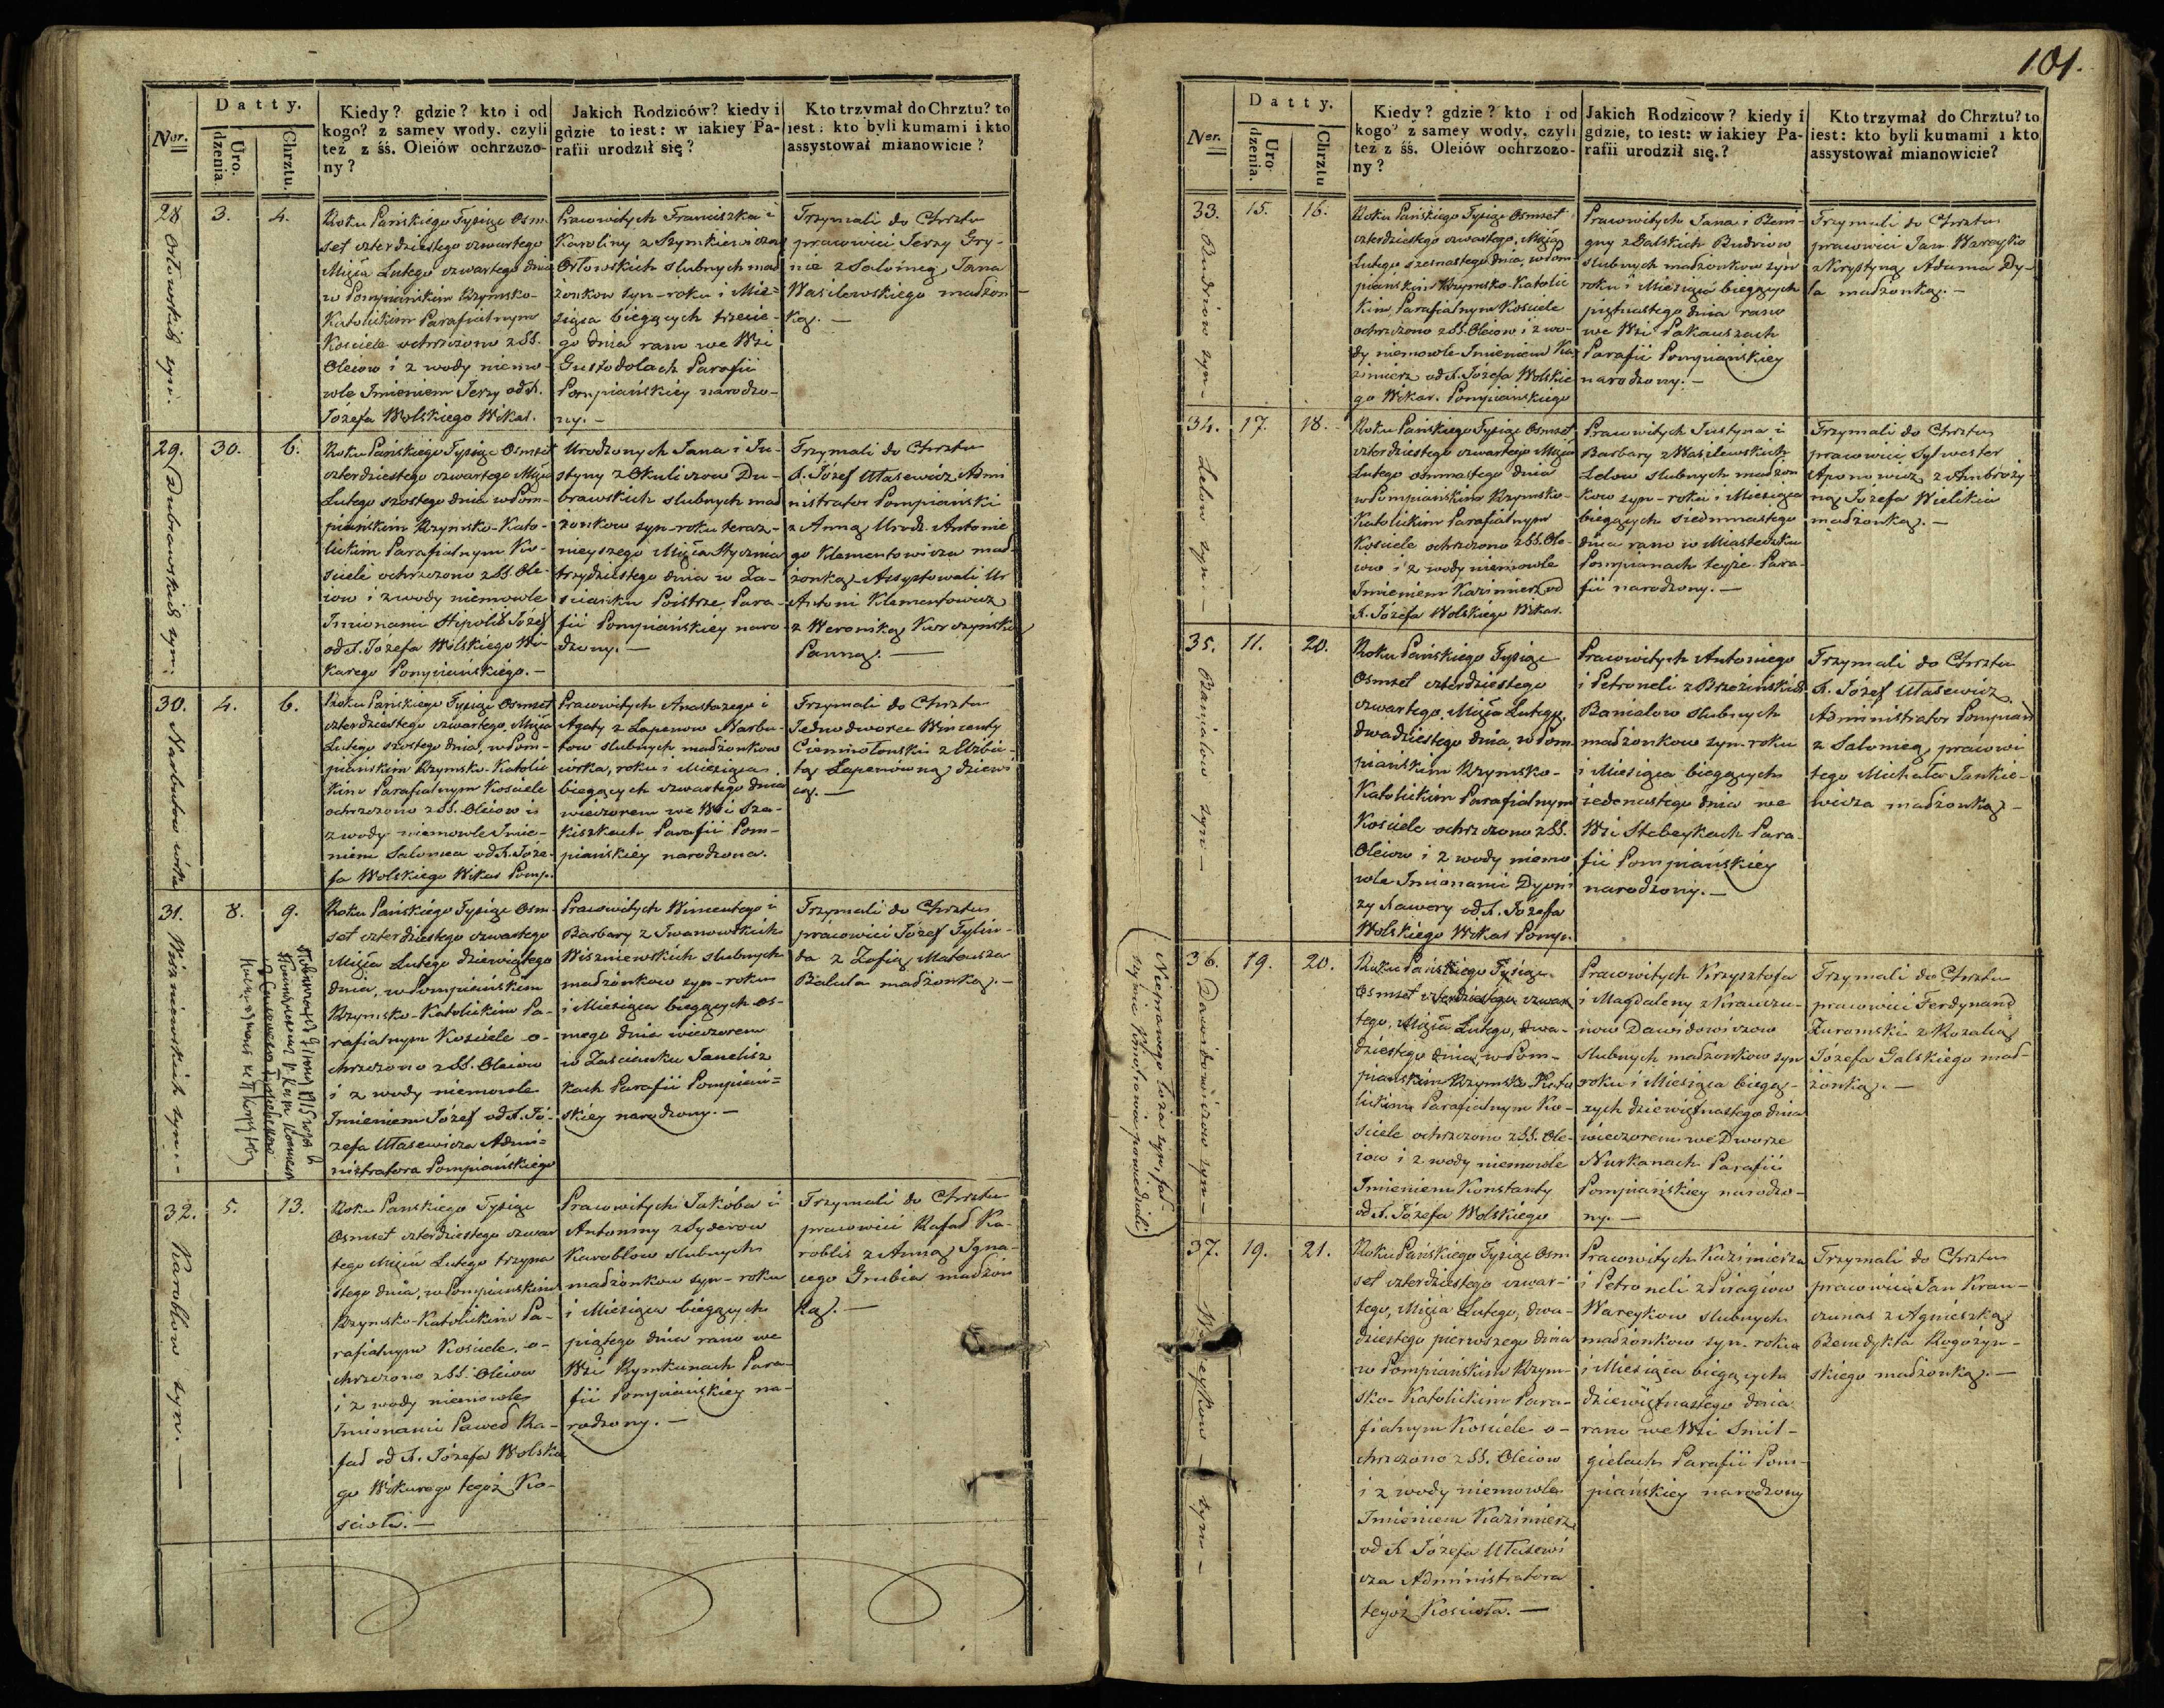 Datty.
Kiedy? gdzie? kto i od
kogo? z samey wody, czyli
też z śś. Oleiów ochrzczo-
ny?
Jakich Rodziców? kiedy i
gdzie to iest: w iakiey Pa-
rafii urodził się?
Kto trzymał do Chrztu? to
iest: kto byli kumami i kto
assystował mianowicie?
Ner.
Uro-
dzenia.
Chrztu.
28
Orłowskich syn.
3.
4.
Roku Pańskiego Tysiąc Osm-
set czterdziestego czwartego
Msca Lutego czwartego dnia
w Pompiańskim Rzymsko-
Katolickim Parafialnym
Kosciele ochrzczono z SS.
Oleiow i z wody niemo-
wle Imieniem Jerzy od X.
Józefa Wolskiego Wikar.
Pracowitych Franciszka i
Karoliny z Szymkiewiczow
Orłowskich slubnych mał
żonkow syn - roku i Mie-
siąca bieżących trzecie-
go dnia rano we Wsi
Gustodolach Parafii
Pompiańskiey narodzo-
ny. -
Trzymali do Chrztu
pracowici Jerzy Gry-
nie z Salomeą Jana
Wasilewskiego małżon-
ką. -
29.
Dubrawskich syn.
30.
6.
Roku Pańskiego Tysiąc Osmset
czterdziestego czwartego Msca
Lutego szostego dnia w Pom-
piańskim Rzymsko-Kato-
lickim Parafialnym Ko-
sciele ochrzczono z SS. Ole-
iow i z wody niemowle
Imionami Hipolit Józef
od X. Józefa Wolskiego Wi-
karego Pompiańskiego. -
Urodzonych Jana i Ju-
styny z Okuliczow Du-
brawskich slubnych mał
żonkow syn - roku teraz-
nieyszego Msca Stycznia
trzydziestego dnia w Za-
scianku Poistrze Para-
fii Pompiańskiey naro-
dzony. -
Trzymali do Chrztu
X. Józef Utasewicz Admi
nistrator Pompiański
z Anną Urodz. Antonie
go Klementowicza mał-
żonką - Assystowali Ur
Antoni Klementowicz
z Weroniką Kurczyńską
Panną. -
30.
Narbutow córka
4.
6.
Roku Pańskiego Tysiąc Osmset
czterdziestego czwartego, Msca
Lutego szostego dnia, w Pom-
piańskim Rzymsko-Katolic
kim Parafialnym Kosciele
ochrzczono z SS. Oleiow i
z wody niemowle Imie-
niem Salomea od X. Józe-
fa Wolskiego Wikar Pomp.
Pracowitych Anastazego i
Agaty z Łapenow Narbu-
tow slubnych małżonkow
córka, roku i Miesiąca
bieżących czwartego dnia
wieczorem we Wsi Sza-
kiszkach Parafii Pom-
piańskiey narodzona.
Trzymali do Chrztu
Jednodworce Wincenty
Ciemnołonski z Elżbie-
tą Łapenówną dziewi
cą. -
31.
Wiszniewskich syn. -
8.
9.
Roku Pańskiego Tysiąc Osm-
set czterdziestego czwartego
Msca Lutego dziewiątego
dnia, w Pompiańskim
Rzymsko-Katolickim Pa-
rafialnym Kosciele o-
chrzczono z SS. Oleiow
i z wody niemowle
Imieniem Józef od X. Jó-
zefa Utasewicza Admi-
nistratora Pompiańskiego
Pracowitych Wincentego i
Barbary z Iwanowskich
Wiszniewskich slubnych
małżonkow syn - roku
i Miesiąca bieżących os-
mego dnia wieczorem
w Zascianku Janelisz
kach Parafii Pompiań-
skiey narodzony. -
Trzymali do Chrztu
pracowici Józef Tylin-
da z Zofią Mateusza
Baluta małżonką. -
32.
Karoblow syn. -
5.
13.
Roku Pańskiego Tysiąc
Osmset czterdziestego czwar
tego Msca Lutego trzyna
stego dnia, w Pompiańskim
Rzymsko-Katolickim Pa-
rafialnym Kosciele, o-
chrzczono z SS. Oleiow
i z wody niemowle
Imionami Paweł Ra-
fał od X. Józefa Wolskie
go Wikarego tegoż Ko-
scioła. -
Pracowitych Jakóba i
Antoniny z Syderow
Karoblow slubnych
małżonkow syn - roku
i Miesiąca bieżących
piątego dnia rano we
Wsi Rymkunach Para-
fii Pompiańskiey na-
rodzony. -
Trzymali do Chrztu
pracowici Rafał Ka-
roblis z Anną Igna-
cego Grubia małżon
ką. -
101.
Datty.
Ner.
Uro-
dzenia.
Chrztu
Kiedy? gdzie? kto i od
kogo? z samey wody, czyli
też z śś. Oleiów ochrzczo-
ny?
Jakich Rodzicow? kiedy i
gdzie, to iest: w iakiey Pa-
rafii urodził się.?
Kto trzymał do Chrztu? to
iest: kto byli kumami i kto
assystował mianowicie?
33.
Rudziow syn -
15.
16.
Roku Pańskiego Tysiąc Osmset
czterdziestego czwartego, Msca
Lutego szesnastego dnia, w Pom
piańskim Rzymsko-Katolic
kim Parafialnym Kosciele
ochrzczono z SS. Oleiow i z wo-
dy niemowle Imieniem Ka
zimierz od X. Józefa Wolskie
go Wikar. Pompiańskiego
Pracowitych Jana i Rem-
gny z Galskich Rudziow
slubnych małżonkow syn
roku i Miesiąca bieżących
piętnastego dnia rano
we Wsi Pakauszach
Parafii Pompiańskiey
narodzony. -
Trzymali do Chrztu
pracowici Jan Wareyko
z Krystyną Adama Dy-
la małżonką. -
34.
Lelow syn. -
17.
18.
Roku Pańskiego Tysiąc Osmset
czterdziestego czwartego Msca
Lutego osmnastego dnia
w Pompiańskim Rzymsko-
Katolickim Parafialnym
Kosciele ochrzczono z SS. Ole-
iow i z wody niemowle
Imieniem Kazimierz od
X. Józefa Wolskiego Wikar.
Pracowitych Justyna i
Barbary z Wasilewskich
Lelow slubnych małżon
kow syn - roku i Miesiąca
bieżących siedmnastego
dnia rano w Miasteczku
Pompianach teyże Para-
fii narodzony. -
Trzymali do Chrztu
pracowici Sylwester
Aponowicz z Ambroży-
ną Józefa Wielikia
małżonką. -
35.
Baniałow syn -
11.
20.
Roku Pańskiego Tysiąc
Osmset czterdziestego
czwartego, Msca Lutego,
dwadziestego dnia, w Pom
piańskim Rzymsko-
Katolickim Parafialnym
Kosciele ochrzczono z SS.
Oleiow i z wody niemo
wle Imionami Dyoni
zy Xawery od X. Józefa
Wolskiego Wikar Pomp.
Pracowitych Antoniego
i Petroneli z Brzezińskich
Baniałow slubnych
małżonkow syn - roku
i Miesiąca bieżących
iedenastego dnia we
Wsi Stebeykach Para-
fii Pompiańskiey
narodzony. -
Trzymali do Chrztu
X. Józef Utasewicz
Administrator Pompiań
z Salomeą pracowi
tego Michała Jankie-
wicza małżonką -
36.
Dawidowiczow syn -
19.
20.
Roku Pańskiego Tysiąc
Osmset czterdziestego czwar
tego, Msca Lutego, dwa-
dziestego dnia, w Pom-
piańskim Rzymsko-Kato
lickim Parafialnym Ko-
sciele ochrzczono z SS. Ole-
iow i z wody niemowle
Imieniem Konstanty
od X. Józefa Wolskiego
Pracowitych Krzysztofa
i Magdaleny z Krauczu-
now Dawidowiczow
slubnych małżonkow syn
roku i Miesiąca bieżą-
cych dziewiętnastego dnia
wieczorem we Dworze
Nurkanach Parafii
Pompiańskiey narodzo-
ny. -
Trzymali do Chrztu
pracowici Ferdynand
Zuromski z Rozalią
Józefa Galskiego mał-
żonką. -
37.
19.
21.
syn -
Roku Pańskiego Tysiąc Osm
set czterdziestego czwar-
tego, Msca Lutego, dwa-
dziestego pierwszego dnia
w Pompiańskim Rzym-
sko-Katolickim Para-
fialnym Kosciele o-
chrzczono z SS. Oleiow
i z wody niemowle
Imieniem Kazimierz
od X. Józefa Utasewi
cza Administratora
tegoż Koscioła. -
Pracowitych Kazimierza
i Petroneli z Piragiow
Wareykow slubnych
małżonkow syn - roku
i Miesiąca bieżących
dziewiętnastego dnia
rano we Wsi Smil-
gielach Parafii Pom-
piańskiey narodzony
Trzymali do Chrztu
pracowici Jan Krau-
czunas z Agnieszką
Benedykta Rogożyn-
skiego małżonką. -